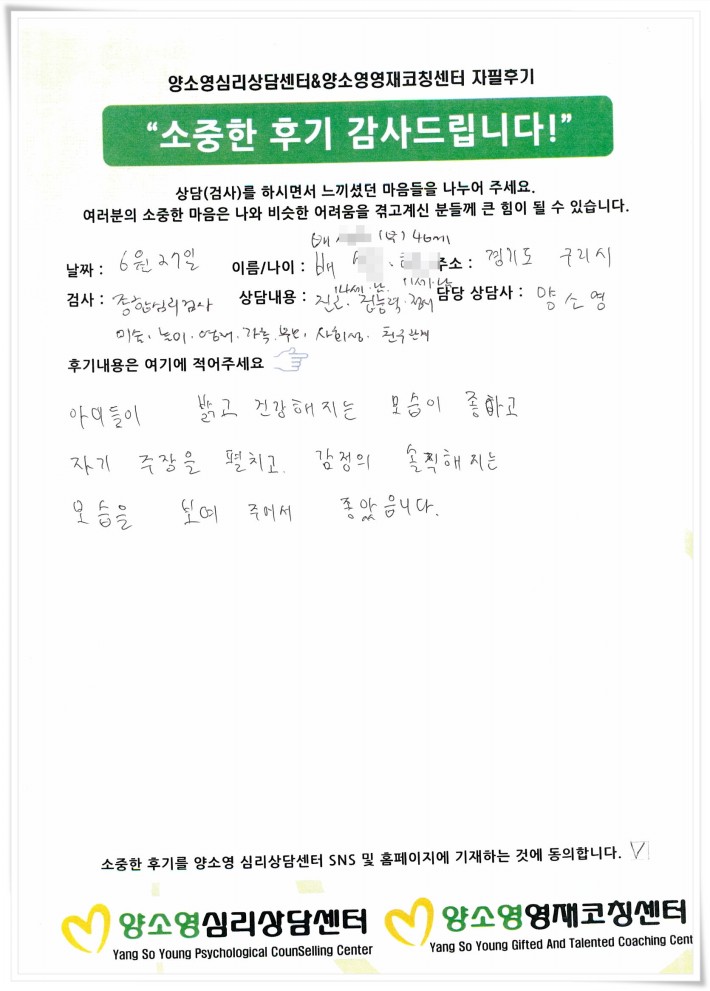 양소영심리상담센터&양소영영재코칭센터 자필후기
“소중한 후기 감사드립니다!”
상담(검사)를 하시면서 느끼셨던 마음들을 나누어 주세요.
여러분의 소중한 마음은 나와 비슷한 어려움을 겪고계신 분들께 큰 힘이 될 수 있습니다.
배 (부) 46세
날짜 : 6월 27일 이름/나이 : 배 주소 : 경기도 구리시
14세·남 11세·남
검사 : 종합심리검사 상담내용 : 진로·집중력·정서 담당 상담사 : 양소영
미술, 놀이·언어·가족·부모, 사회성· 친구관계
후기내용은 여기에 적어주세요
아이들이 밝고 건강해지는 모습이 좋하고
자기 주장을 펼치고, 감정의 솔찍해지는
모습을 보여 주어서 좋았읍니다.
소중한 후기를 양소영 심리상담센터 SNS 및 홈페이지에 기재하는 것에 동의합니다. V
양소영심리상담센터 양소영영재코칭센터
Yang So Young Psychological CounSelling Center Yang So Young Gifted And Talented Coaching Cent